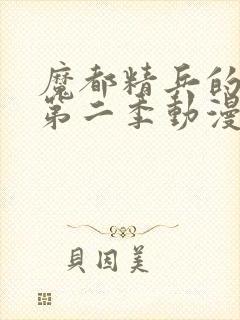 魔都精兵的
第二季動漫
貝因美